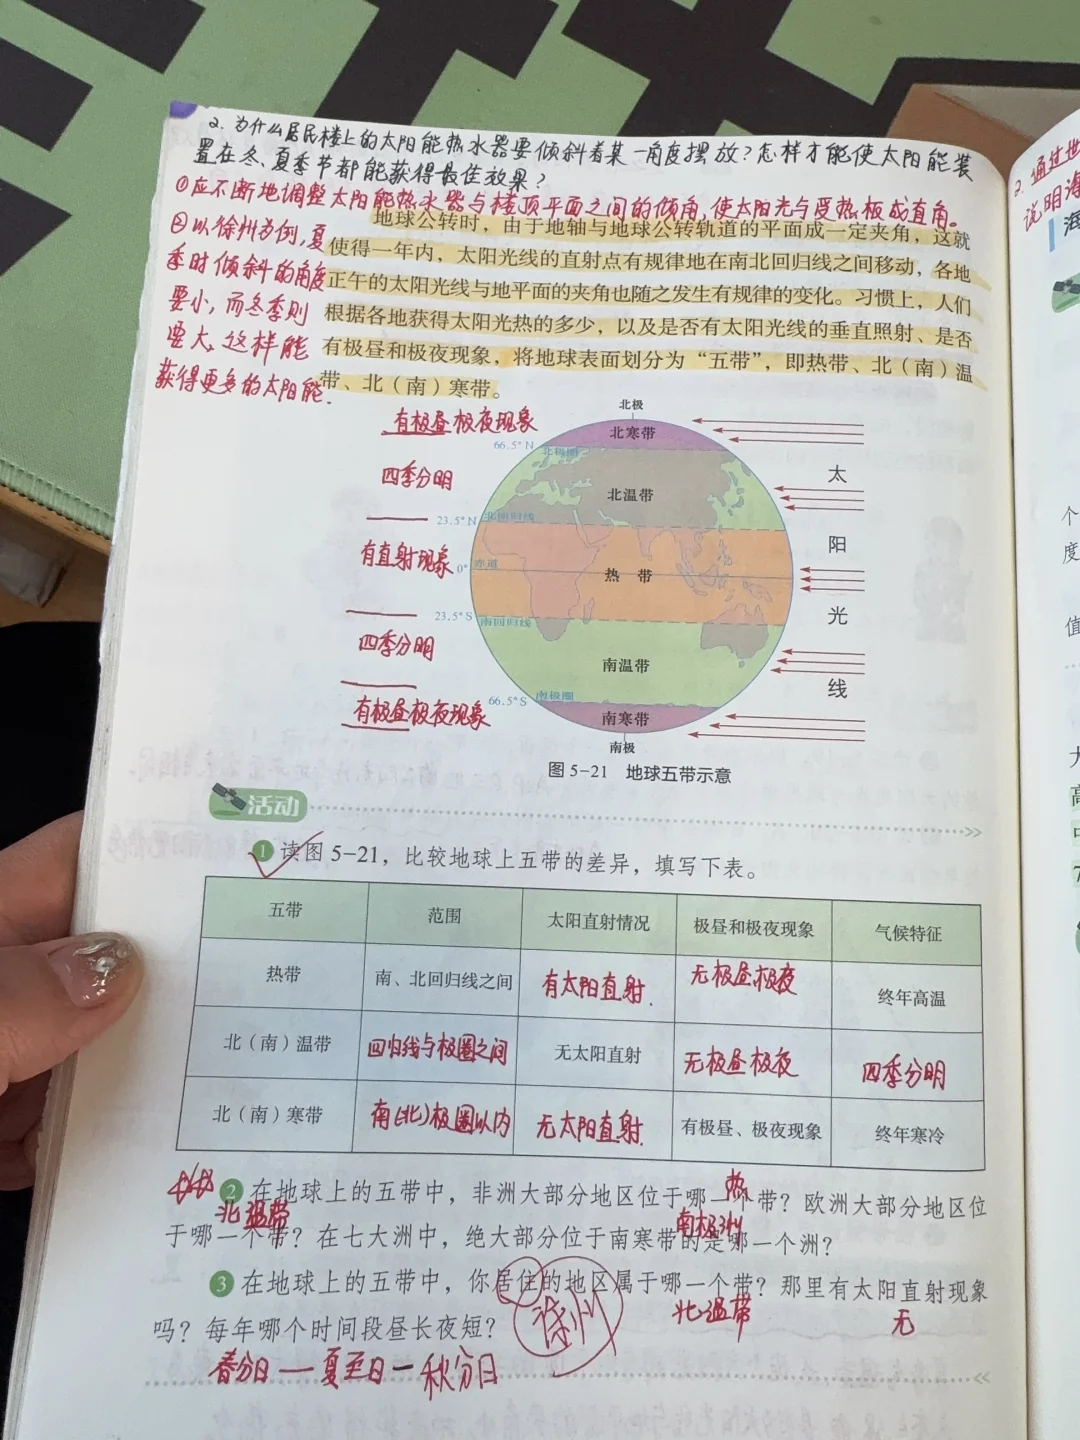 2.为什么居民楼上的太阳能热水器要倾斜着某一角度摆放?怎样才能使太阳能装
置在冬、夏季节都能获得最佳效果?
①应不断地调整太阳能热水器与楼顶平面之间的倾角,使太阳光与受热板成直角。
②以徐州为例,夏
季时倾斜的角度
要小,而冬季则
要大,这样能
获得更多的太阳能.
地球公转时，由于地轴与地球公转轨道的平面成一定夹角，这就
使得一年内，太阳光线的直射点有规律地在南北回归线之间移动，各地
正午的太阳光线与地平面的夹角也随之发生有规律的变化。习惯上，人们
根据各地获得太阳光热的多少，以及是否有太阳光线的垂直照射、是否
有极昼和极夜现象，将地球表面划分为“五带”，即热带、北（南）温
带、北（南）寒带。
北极
有极昼极夜现象
北寒带
66.5° N
北极圈
四季分明
北温带
23.5° N
北回归线
有直射现象
0°
赤道
热 带
23.5° S
南回归线
四季分明
南温带
66.5° S
南极圈
有极昼极夜现象
南寒带
南极
太
阳
光
线
图 5-21 地球五带示意
活动
1 读图 5-21，比较地球上五带的差异，填写下表。
五带 范围 太阳直射情况 极昼和极夜现象 气候特征
热带 南、北回归线之间 有太阳直射. 无极昼极夜 终年高温
北（南）温带 回归线与极圈之间 无太阳直射 无极昼极夜 四季分明
北（南）寒带 南(北)极圈以内 无太阳直射. 有极昼、极夜现象 终年寒冷
热
2 在地球上的五带中，非洲大部分地区位于哪一个带？欧洲大部分地区位
北温带 南极洲
于哪一个带？在七大洲中，绝大部分位于南寒带的是哪一个洲？
3 在地球上的五带中，你居住的地区属于哪一个带？那里有太阳直射现象
徐州 北温带 无
吗？每年哪个时间段昼长夜短？
春分日—夏至日—秋分日
2.通过地
说明海
海
个
度
值
大
高
中
7